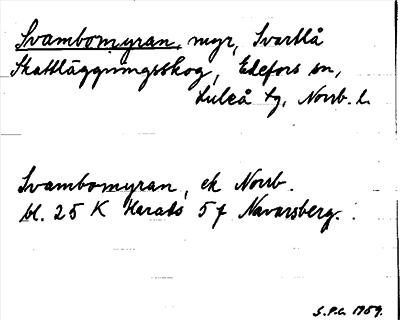 Svambomyran, myr, Svartlå
Skattläggningsskog, Edefors sn,
Luleå tg, Norrb. l.
Svambomyran, ek Norrb.
bl. 25 K Harads 5 f Navarsberg.
S.P.C. 1959.